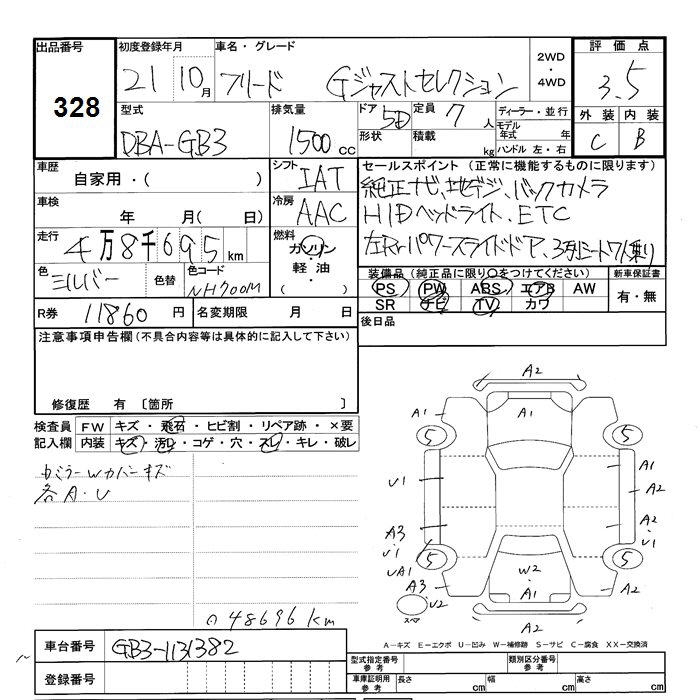 出品番号 初度登録年月 車名・グレード 2WD・4WD 評価点
328 21 10月 フリード Gジャストセレクション 3.5
型式 排気量 ドア 5D 定員 7人 ディーラー・並行 外装 内装
DBA-GB3 1500cc 形状 積載 kg モデル年式 年 C B
ハンドル 左・右
車歴 自家用・( ) シフト IAT セールスポイント(正常に機能するものに限ります)
車検 年 月( 日) 冷房 AAC 純正ナビ、地デジ、バックカメラ
HIDヘッドライト、ETC
走行 4万8千695km 燃料 ガソリン・軽油・( ) 左右パワースライドドア、3列シート7人乗り
色 シルバー 色替 色コード NH700M 装備品(純正品に限り○をつけてください) 新車保証書
PS PW ABS エアB AW 有・無
SR ナビ TV カワ
R券 11860円 名変期限 月 日 後日品
注意事項申告欄(不具合内容等は具体的に記入して下さい)
修復歴 有 〔箇所 〕
検査員記入欄 FW キズ・飛石・ヒビ割・リペア跡・×要
内装 キズ・汚レ・コゲ・穴・スレ・キレ・破レ
カミラーWカバーキズ
各A・U
48696km
A2
A1 A1
5 5
A1
U1 A2
A3 A2
U1 U1
UA1
5 W2 5
A3 A1 A2
U2
スペア
A2
A−キズ E−エクボ U−凹み W−補修跡 S−サビ C−腐食 XX−交換済
車台番号 GB3-1131382
登録番号
型式指定番号 参考 類別区分番号 参考
車庫証明用 参考 長さ cm 幅 cm 高さ cm